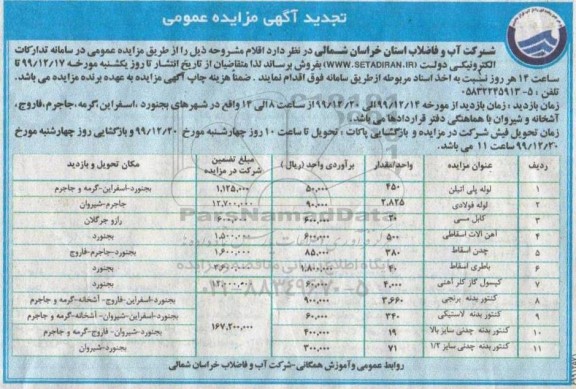 تجدید آگهی مزایده عمومی
شرکت آب و فاضلاب استان خراسان شمالی در نظر دارد اقلام مشروحه ذیل را از طریق مزایده عمومی در سامانه تدارکات
الکترونیکی دولت (WWW.SETADIRAN.IR) بفروش برساند لذا متقاضیان از تاریخ انتشار تا روز یکشنبه مورخه ۹۹/۱۲/۱۷ تا
ساعت ۱۴ هر روز نسبت به اخذ اسناد مربوطه از طریق سامانه فوق اقدام نمایند . ضمنا هزینه چاپ آگهی مزایده به عهده برنده مزایده می باشد.
تلفن : ۵-۰۵۸۳۲۲۲۵۹۱۳
زمان بازدید : زمان بازدید از مورخه ۹۹/۱۲/۱۴ الی ۹۹/۱۲/۲۰ از ساعت ۸ الی ۱۳ واقع در شهرهای بجنورد ،اسفراین،گرمه،جاجرم،فاروج،
آشخانه و شیروان با هماهنگی دفتر قراردادها می باشد.
زمان تحویل فیش شرکت در مزایده و بازگشایی پاکات : تحویل تا ساعت ۱۰ روز چهارشنبه مورخ ۹۹/۱۲/۲۰ و بازگشایی روز چهارشنبه مورخ
۹۹/۱۲/۲۰ ساعت ۱۱ می باشد.
ردیف عنوان مزایده واحد/مقدار برآوردی واحد (ریال) مبلغ تضمین شرکت در مزایده مکان تحویل و بازدید
۱ لوله پلی اتیلن ۴۵۰ ۵۰,۰۰۰ ۱,۱۲۵,۰۰۰ بجنورد-اسفراین-گرمه و جاجرم
۲ لوله فولادی ۲,۸۲۵ ۹۰,۰۰۰ ۱۲,۷۰۰,۰۰۰ جاجرم-شیروان
۳ کابل مسی رازو جرگلان
۴ آهن آلات اسقاطی ۵۰۰ ۶۰,۰۰۰ ۱,۵۰۰,۰۰۰ بجنورد
۵ چدن اسقاط ۳۸۰ ۸۵,۰۰۰ ۱,۶۰۰,۰۰۰ بجنورد-جاجرم-فاروج
۶ باطری اسقاط بجنورد
۷ کپسول گاز کلر آهنی ۴,۰۰۰ ۶۰,۰۰۰ ۱۲,۰۰۰,۰۰۰ بجنورد
۸ کنتور بدنه برنجی ۳,۶۶۰ ۹۰۰,۰۰۰ بجنورد-اسفراین-فاروج- آشخانه-گرمه و جاجرم
۹ کنتور بدنه لاستیکی ۳۴۰ ۶۰,۰۰۰ ۱۶۷,۲۰۰,۰۰۰ بجنورد-اسفراین-شیروان- آشخانه-گرمه و جاجرم
۱۰ کنتور بدنه چدنی سایز بالا ۱۹ ۴۰۰,۰۰۰ بجنورد-شیروان- فاروج-گرمه و جاجرم
۱۱ کنتور بدنه چدنی سایز ۱/۲ ۷۱ ۳۰۰,۰۰۰ بجنورد-شیروان
روابط عمومی و آموزش همگانی-شرکت آب و فاضلاب خراسان شمالی